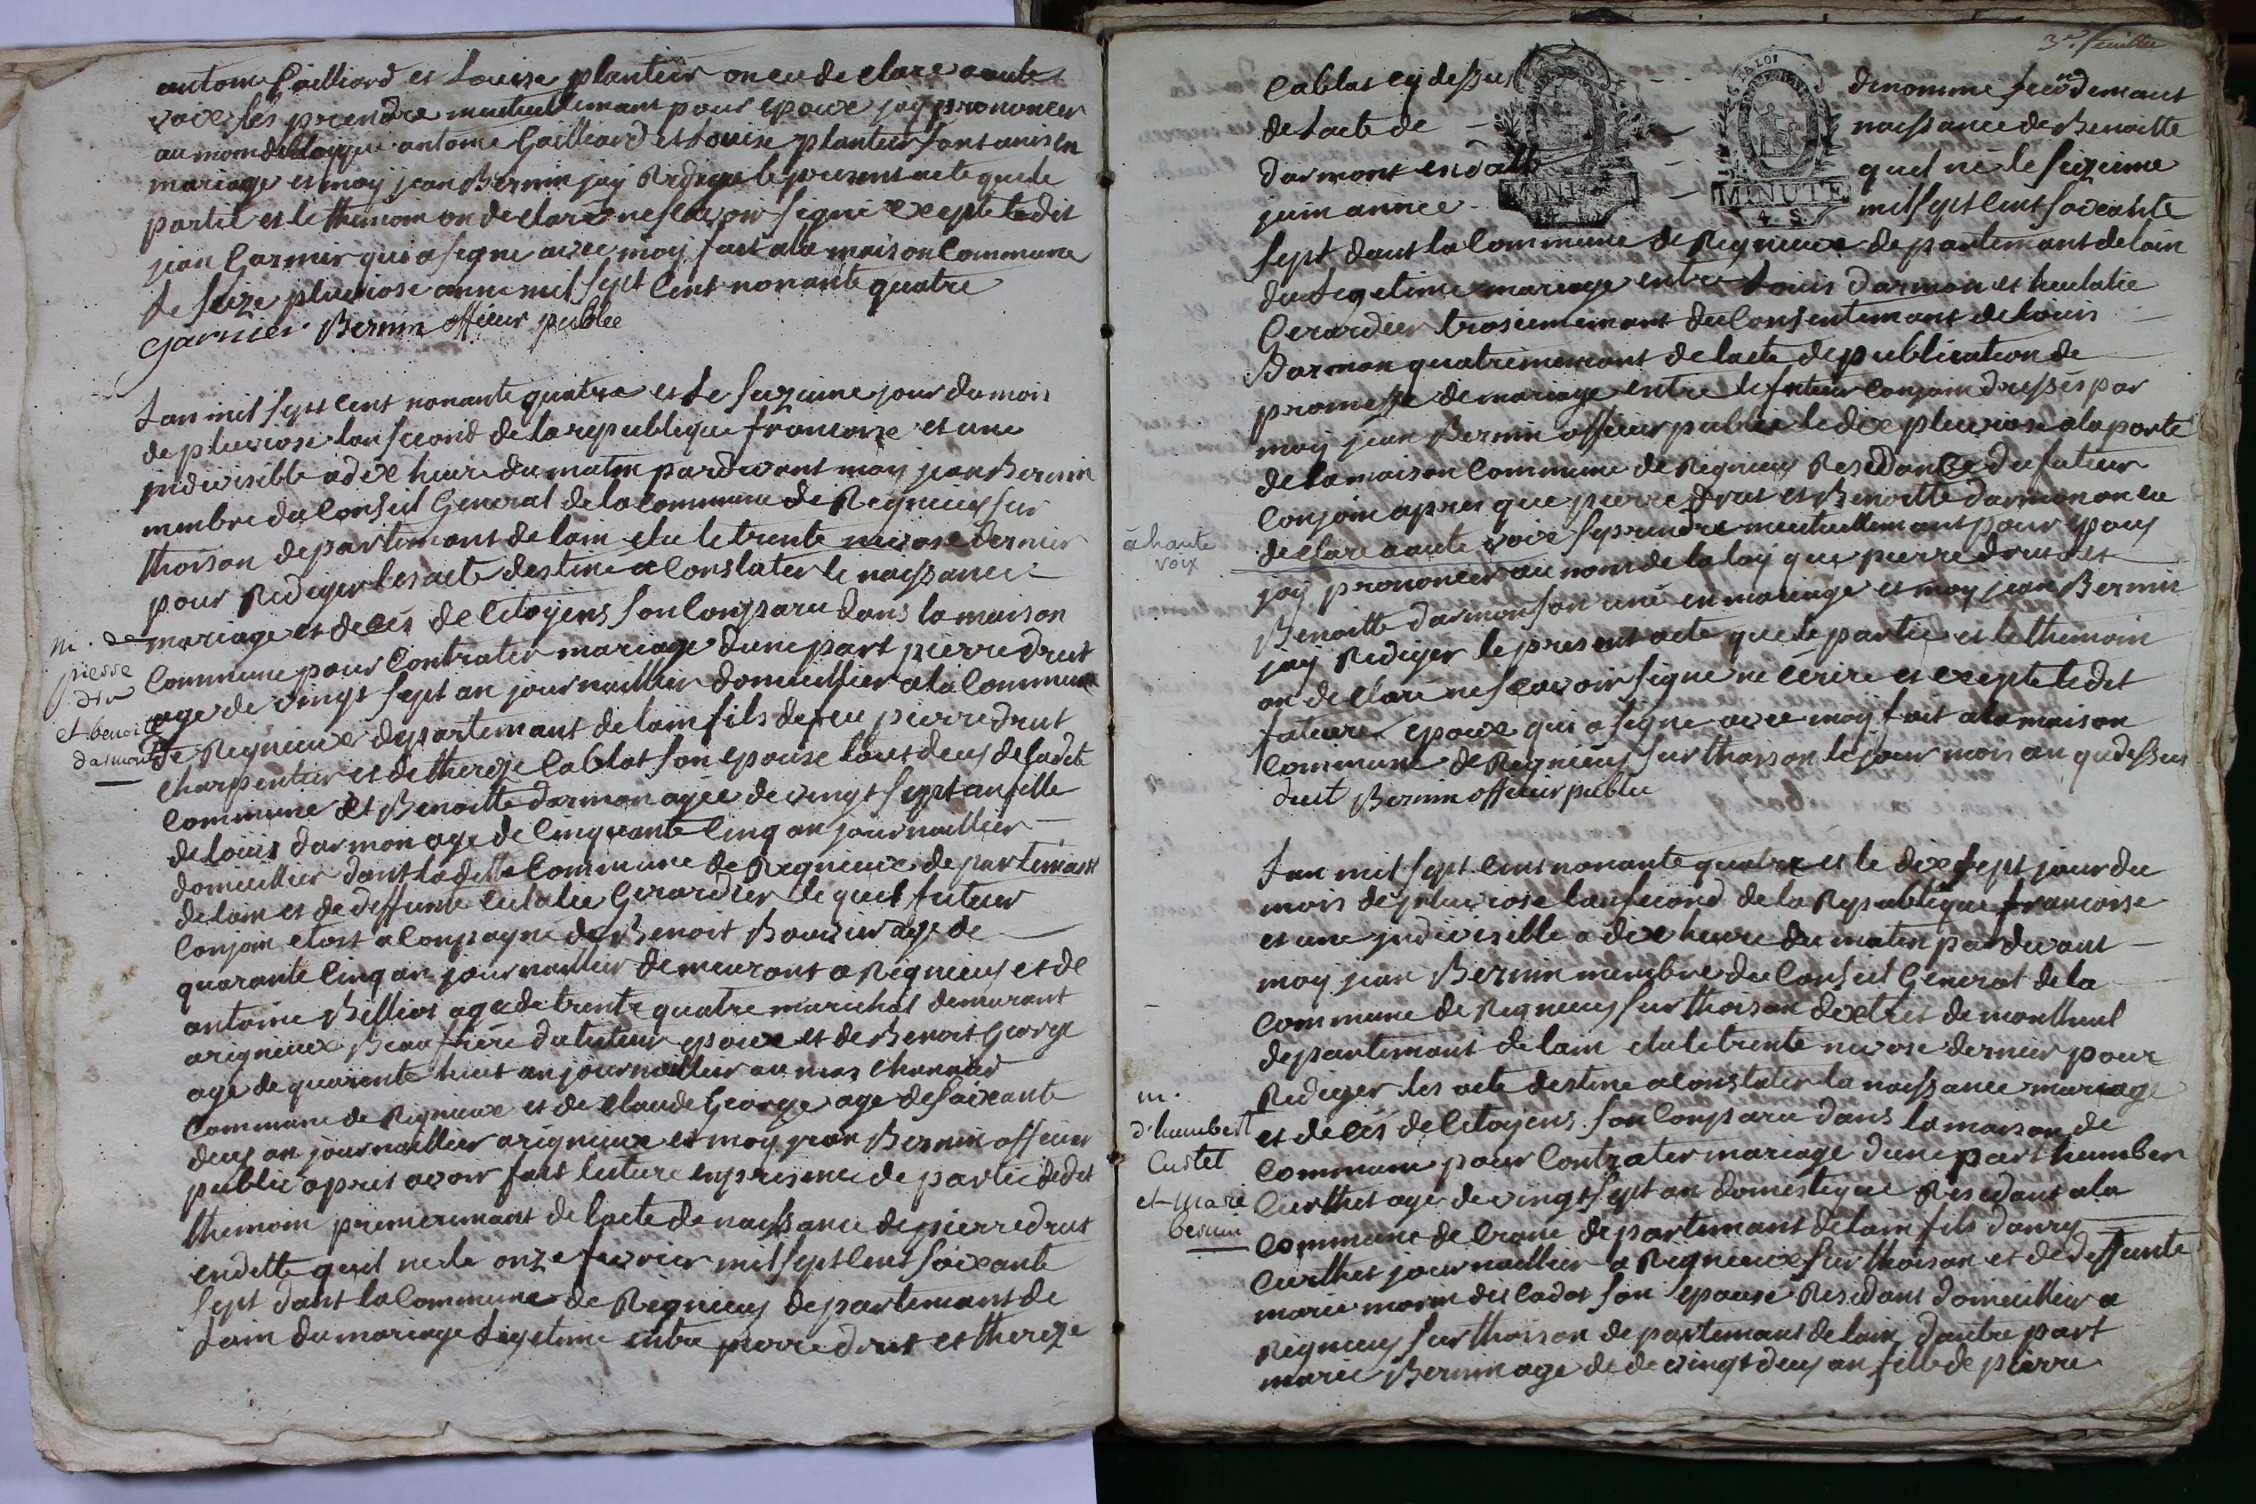 antoine Gailliard et Louise planteur on eu declare aaute
voix ses prendre mutuellemant pour epoux jay prononcer
au nom de la loy que antoine Gailliard et Louise planteur sont unis en
mariage et moy jean Bernin jay Rediger le present acte que le
partie et le themoin on declare ne scavoir signé Excepte ledit
jean Garnier qui a signe avec moy fait a la maison Commune
le seize pluviose anne mil sept Cent nonante quatre
garnier Bernin officier publee
Lan mil sept Cent nonante quatre et le seizieme jour du mois
de pluviose lan second de la republique francoise et une
jndivisible a dix heure du matin pardevant moy jean Bernin
menbre du Conseil General de la Commune de Rignieux sur
thoison departemant de lain elu le trente nivose dernier
pour Rediger les acte destine a Constater le naissance
mariage et deces de Citoyens son Conparu dans la maison
Commune pour Contrater mariage dune part pierre drut
age de vingt sept an journaillier domicillier a la Commune
de Rignieux departemant de lain fils de feu pierre drut
charpentier et de thereze Cablat son epouse tout deux de ladite
Commune et Benoitte darmon agée de vingt sept an fille
de Louis darmon age de Cinquante Cinq an journaillier
domicillier dans la ditte Commune de Rignieux departemant
de lain et de deffunte Eulalie Gerardier le quel futeur
Conjoin etoit aConpagne de Benoit Bouvier age de
quarante Cinq an journaillier demeurant a Rignieux et de
antoine Billiot age de trente quatre marichal demurant
a rignieux Beaufrere du futeur epoux et de Benoit George
age de quarente huit an journaillier au mas
Commune de Rignieux et de Claude George age de soixante
deux an journaillier a rignieux et moy jean Bernin officier
public apres avoir fait luture en presence de partie et dedit
themoin premieremant de lacte de naissance de pierre drut
endatte quil ne le onze fevrier mil sept Cent soixante
sept dans la Commune de Rignieux departemant de
Lain du mariage Legetime entre pierre drut et thereze
m. de
pierre
dru
et benoite
darmont
3e. feuillee
Cablat cy dessus denommé secondemant
de lacte de naissance de Benoitte
darmont endatte quel né le seizieme
juin annee mil sept Cent soixante
sept dans la Commune de Rignieux departemant de lain
du Legetime mariage entre Louis darmon et heulalie
Gerardier troisiememant du Consentemant de Louis
Darmon quatriememant de lacte de publication de
promesse de mariage entre le futeur Conjoin dressés par
moy jean Bernin officier public le dix pluviose a la porte
de la maison Commune de Rignieux Residance du futeur
Conjoin apres que pierre drut et Benoitte darmon on eu
declare aaute voix se prendre mutuellemant pour epoux
jay prononcer au nom de la loy que pierre drut et
Benoitte darmon son uni en mariage et moy jean Bernin
jay Rediger le present acte que le partie et le themoin
on declare ne scavoir signe ne Cerire et excepte ledit
futeure epoux qui a signe avec moy fait a la maison
Commune de Rignieux sur thoison le jour mois an que dessus
drut Bernin officier publee
à haute
voix
Lan mil sept Cent nonante quatre et le dix sept jour du
mois de pluviose lan second de la Republique francoise
et une jndivisible a dix heure du matin pardevant
moy jean Bernin membre du Conseil General de la
Commune de Rignieux sur thoison dixtrit de montluel
departemant de lain elu le trente nivose dernier pour
Rediger les acte destine a Constater la naissance mariage
et deces de Citoyens son Conparu dans la maison de
Commune pour Contrater mariage dune part humber
Curthet age de vingt sept an domestique Residant a la
Commune de Crane departemant de lain fils danry
Curthet journaillier a Rignieux sur thoison et de deffunte
marie morin des Cadot son epouse Residant domicillier a
Rignieux sur thoison departemant de lain dautre part
marie Bernin age de de vingt deux an fille de pierre
m.
d'humbert
Curtet
et marie
bernin
LA LOI
MINUTE
4. S.